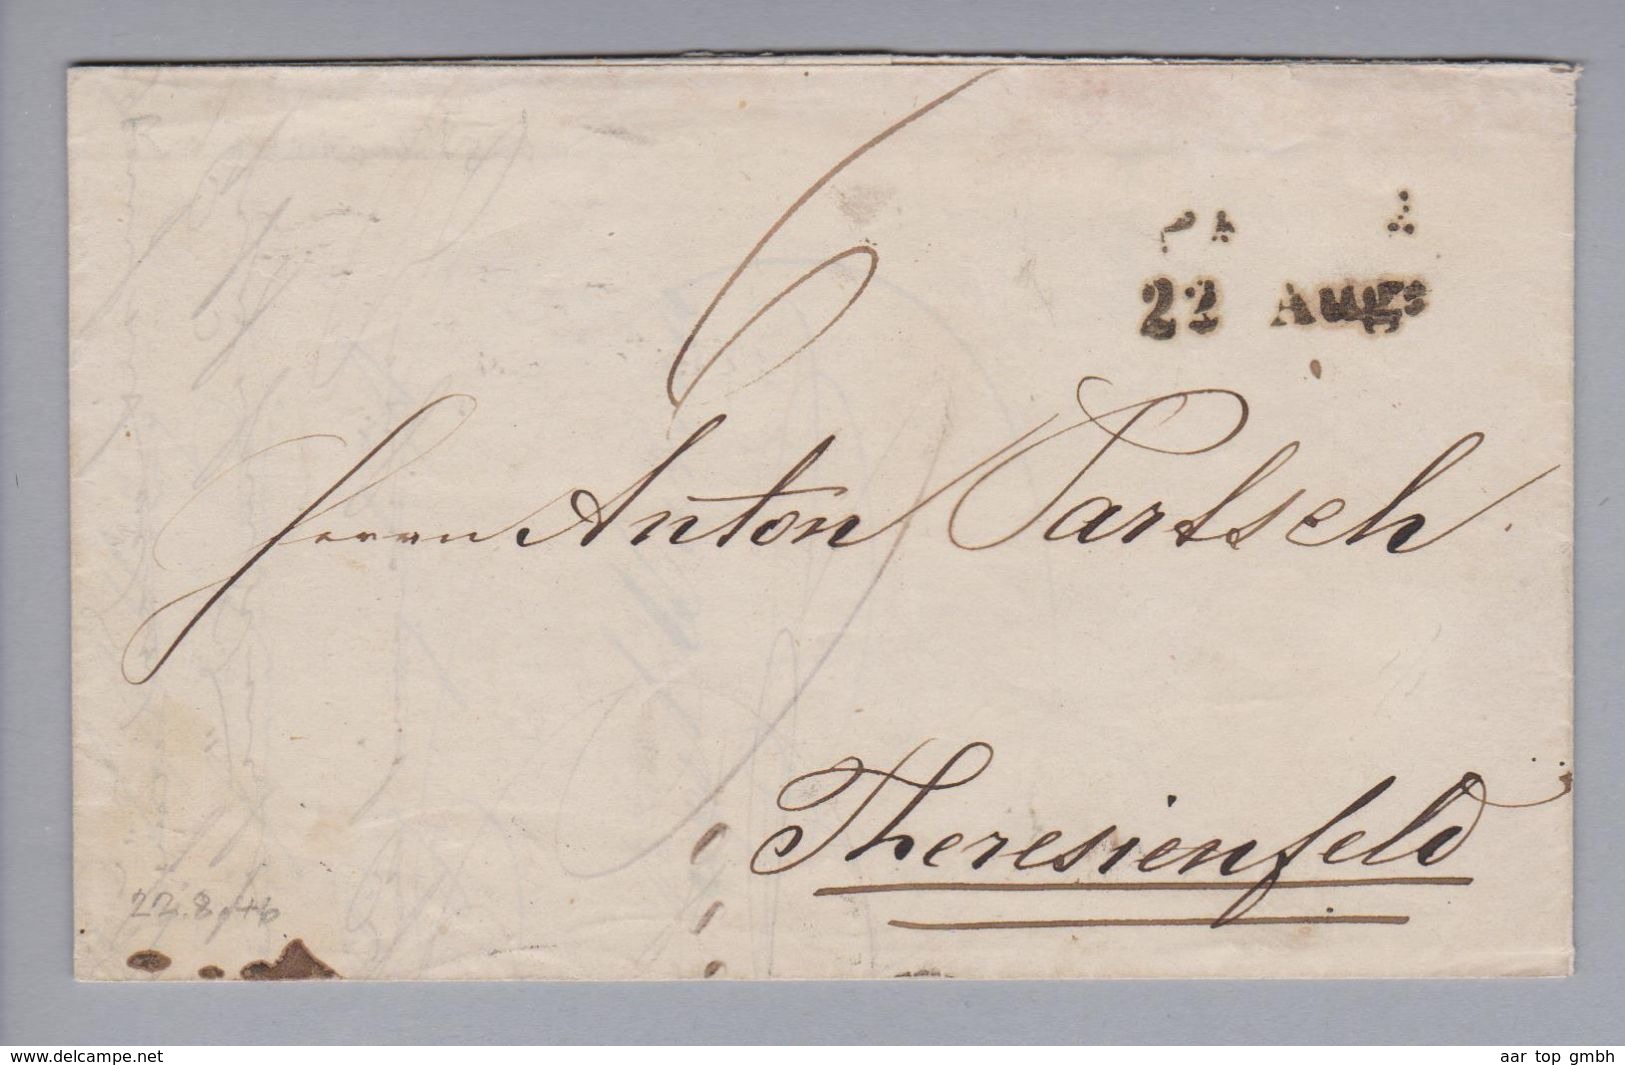 6
22 Aug:
Herrn Anton Partsch
Theresienfeld
22.8.46
www.delcampe.net
aar top gmbh